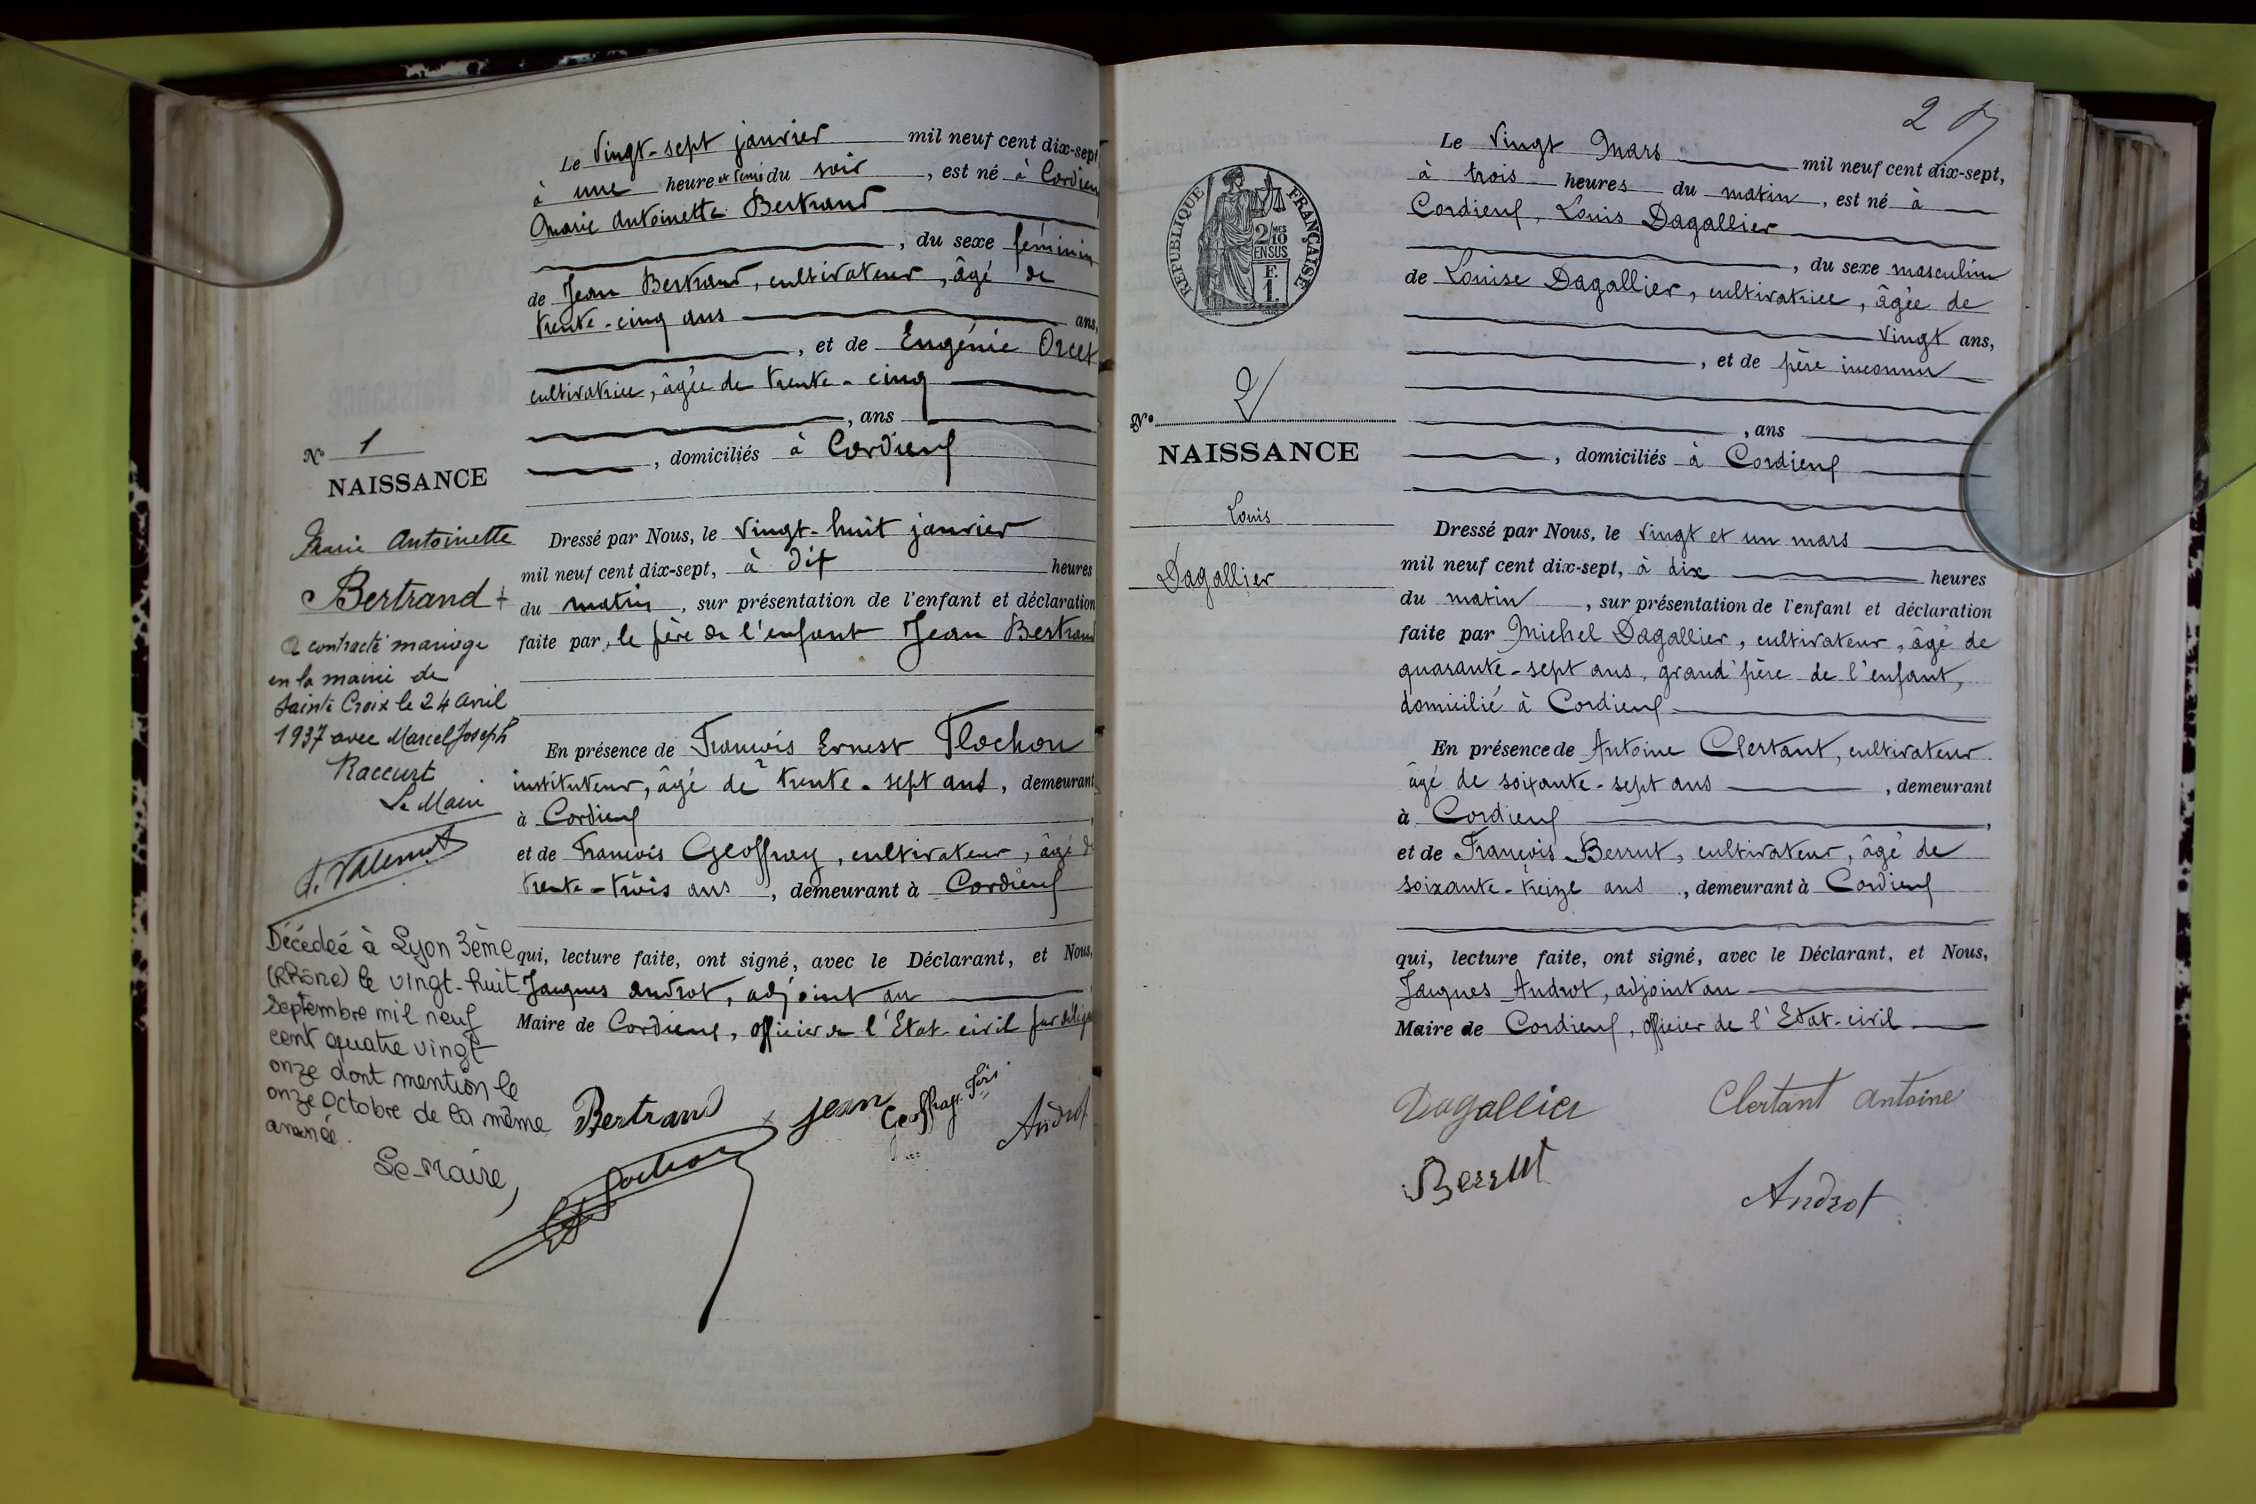 Le Vingt-sept janvier mil neuf cent dix-sept
à une heure et demie du soir, est né à Cordieux
Marie Antoinette Bertrand
, du sexe féminin
de Jean Bertrand, cultivateur, âgé de
trente-cinq ans ans,
, et de Eugénie Orcet
cultivatrice, âgée de trente-cinq
, ans
, domiciliés à Cordieux
N° 1
NAISSANCE
Marie Antoinette
Bertrand +
a contracté mariage
en la mairie de
Sainte Croix le 24 avril
1937 avec Marcel Joseph
Raccurt
Le Maire
Décédée à Lyon 3ème
(Rhône) le vingt-huit
septembre mil neuf
cent quatre vingt
onze dont mention le
onze octobre de la même
année.
Le Maire,
Dressé par Nous, le vingt-huit janvier
mil neuf cent dix-sept, à dix heures
du matin, sur présentation de l'enfant et déclaration
faite par, le père de l'enfant Jean Bertrand
En présence de François Ernest Flochon
instituteur, âgé de trente-sept ans, demeurant
à Cordieux
et de François Geoffray, cultivateur, âgé d
trente-trois ans, demeurant à Cordieux
qui, lecture faite, ont signé, avec le Déclarant, et Nous,
Jacques Androt, adjoint au
Maire de Cordieux, officier de l'Etat-civil par délég
Bertrand Jean Geoffray Fois Androt
Flochon
2
RÉPUBLIQUE FRANÇAISE
2/10 MES
EN SUS
F.
1.
N° 2
NAISSANCE
Louis
Dagallier
Le Vingt Mars mil neuf cent dix-sept,
à trois heures du matin, est né à
Cordieux, Louis Dagallier
, du sexe masculin
de Louise Dagallier, cultivatrice, âgée de
vingt ans,
, et de père inconnu
, ans
, domiciliés à Cordieux
Dressé par Nous, le vingt et un mars
mil neuf cent dix-sept, à dix heures
du matin, sur présentation de l'enfant et déclaration
faite par Michel Dagallier, cultivateur, âge de
quarante-sept ans, grand'père de l'enfant,
domicilié à Cordieux
En présence de Antoine Clertant, cultivateur
âgé de soixante-sept ans, demeurant
à Cordieux,
et de François Berrut, cultivateur, âgé de
soixante-treize ans, demeurant à Cordieux
qui, lecture faite, ont signé, avec le Déclarant, et Nous,
Jacques Androt, adjoint au
Maire de Cordieux, officier de l'Etat-civil
Dagallier Clertant Antoine
Berrut
Androt